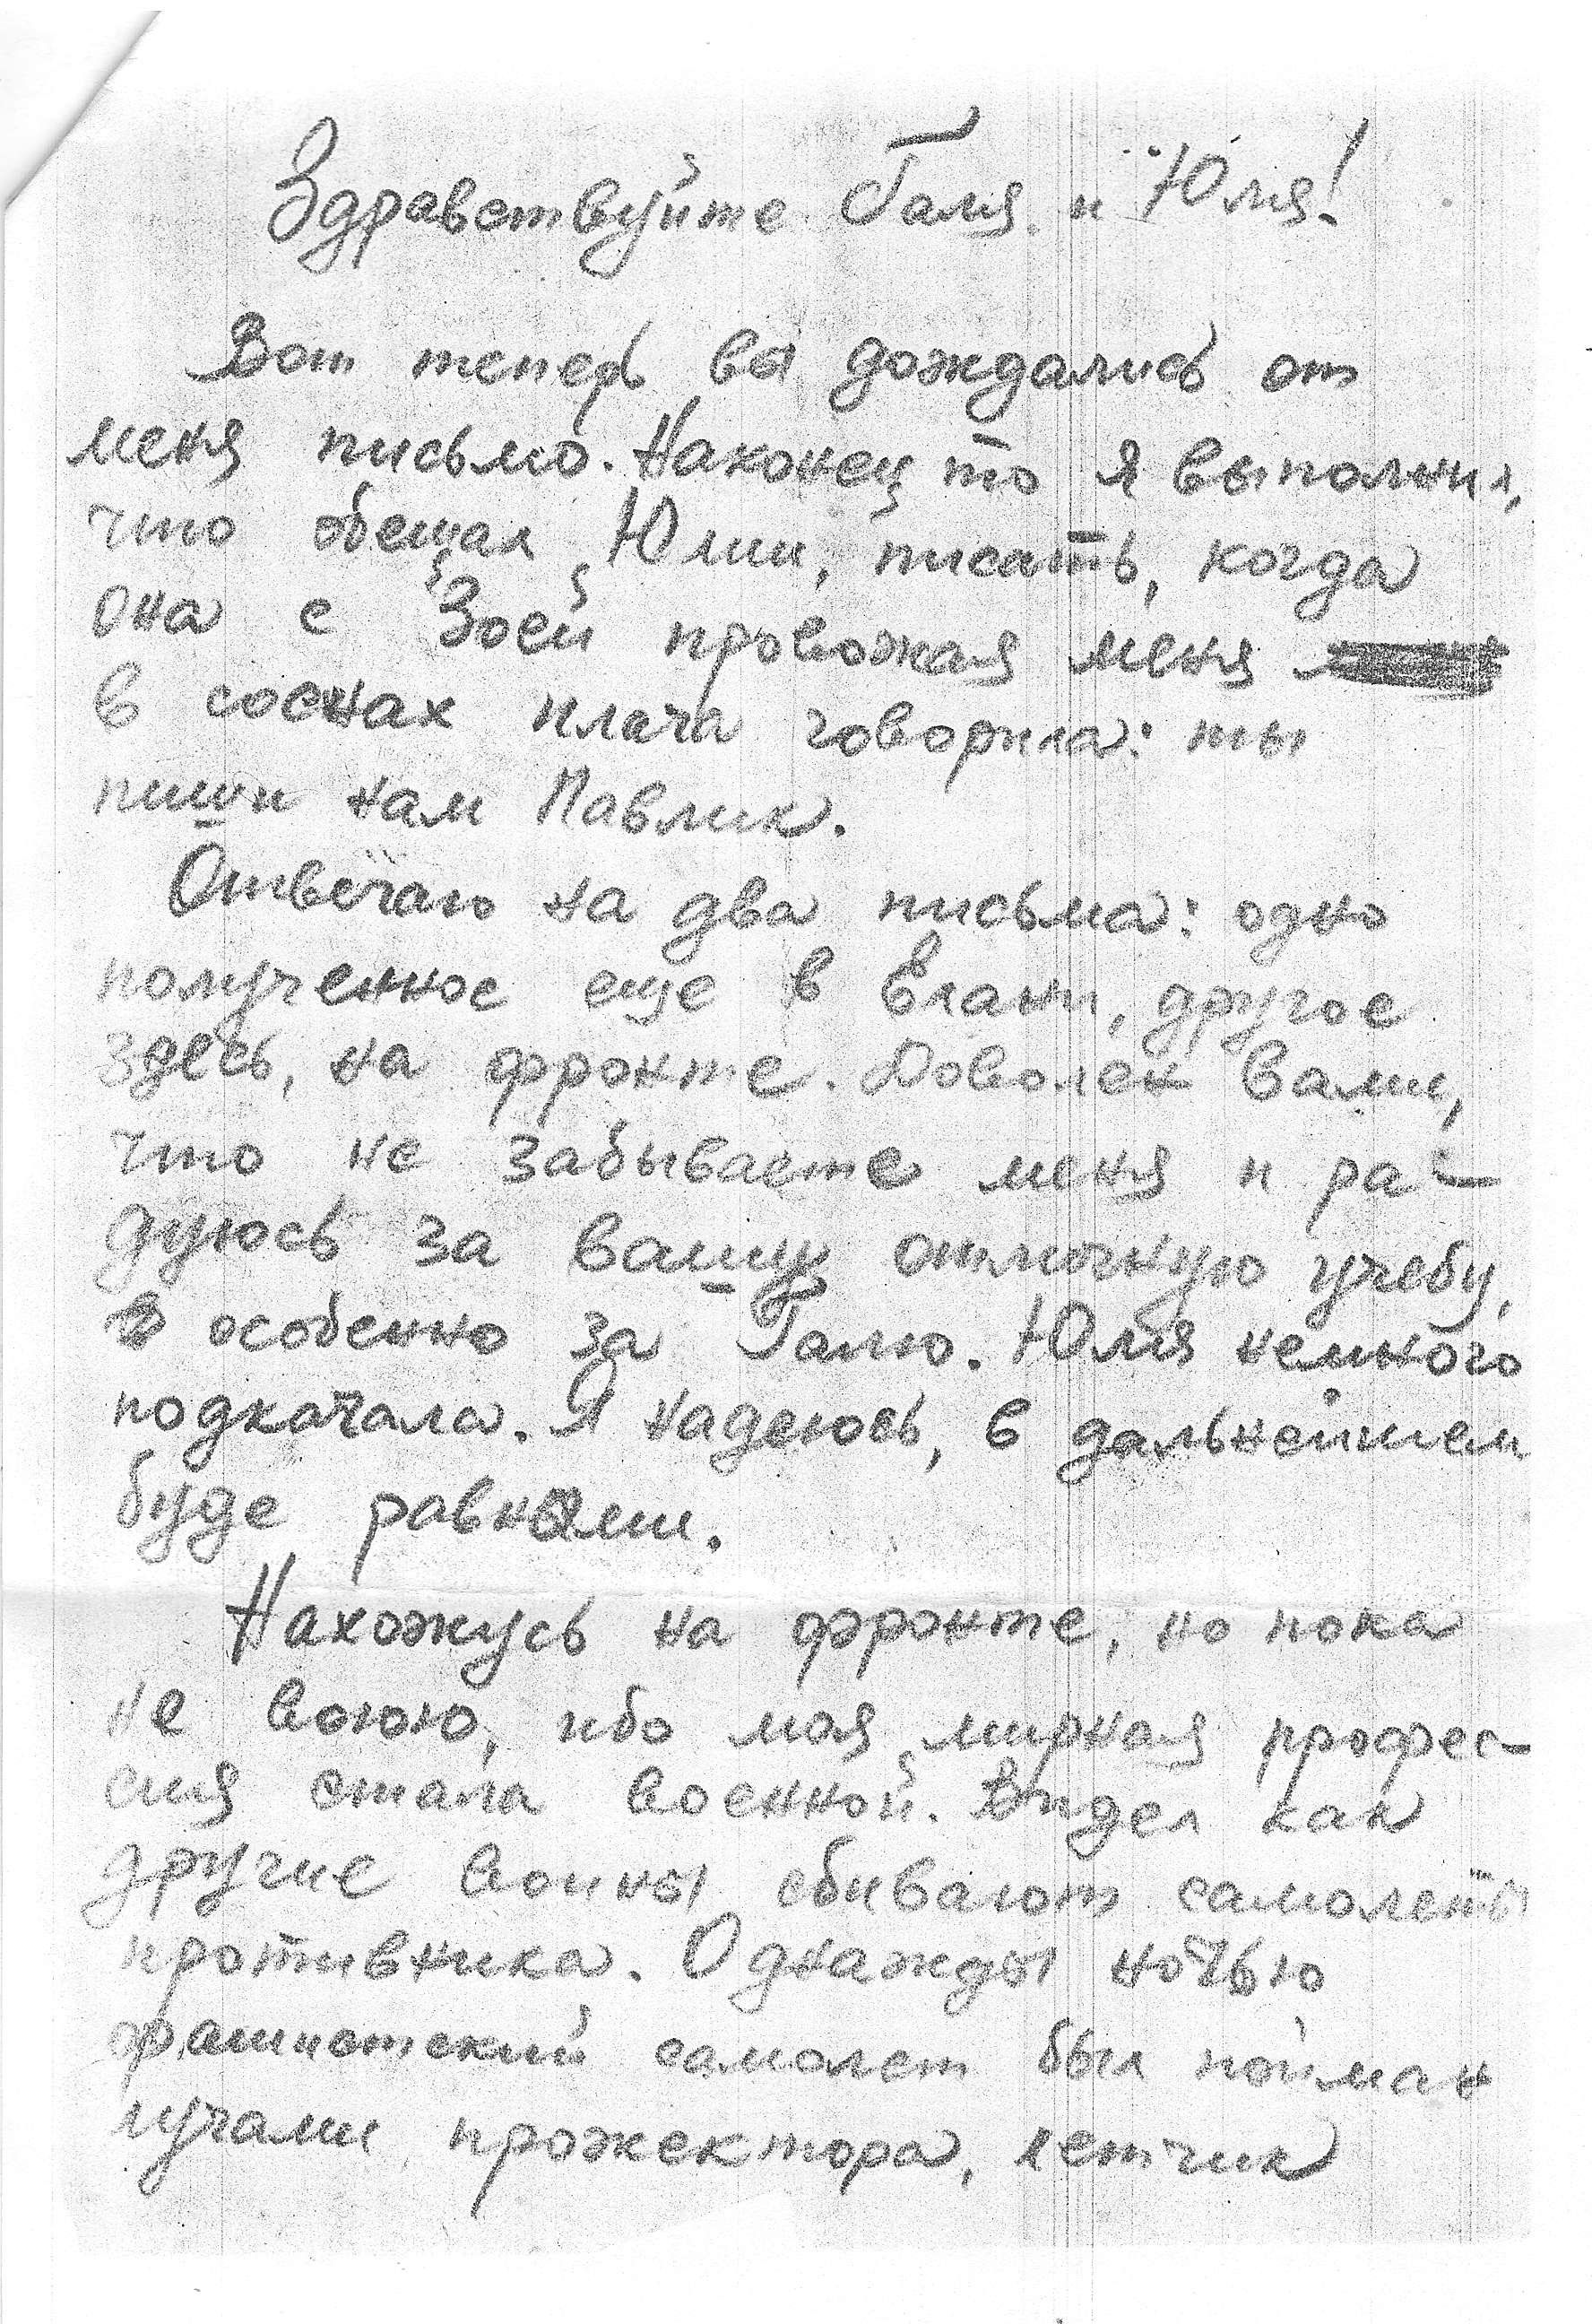 Здравствуйте Галя и Юля!
Вот теперь вы дождались от
меня письмо. Наконец то я выполнил,
что обещал Юли, писать, когда
она с Зоей провожая меня
в соснах плача говорила: ты
пиши нам Павлик.
Отвечаю на два письма: одно
полученное еще в Елани, другое
здесь, на фронте. Доволен Вами,
что не забываете меня и ра-
дуюсь за вашу отличную учебу,
в особенно за Галю. Юля немного
подкачала. Я надеюсь, в дальнейшем
буде равными.
Нахожусь на фронте, но пока
не воюю, ибо моя мирная профес-
сия стала военной. Видел как
другие воины сбивают самолеты
противника. Однажды ночью
фашистский самолет был пойман
лучами прожектора, летчик